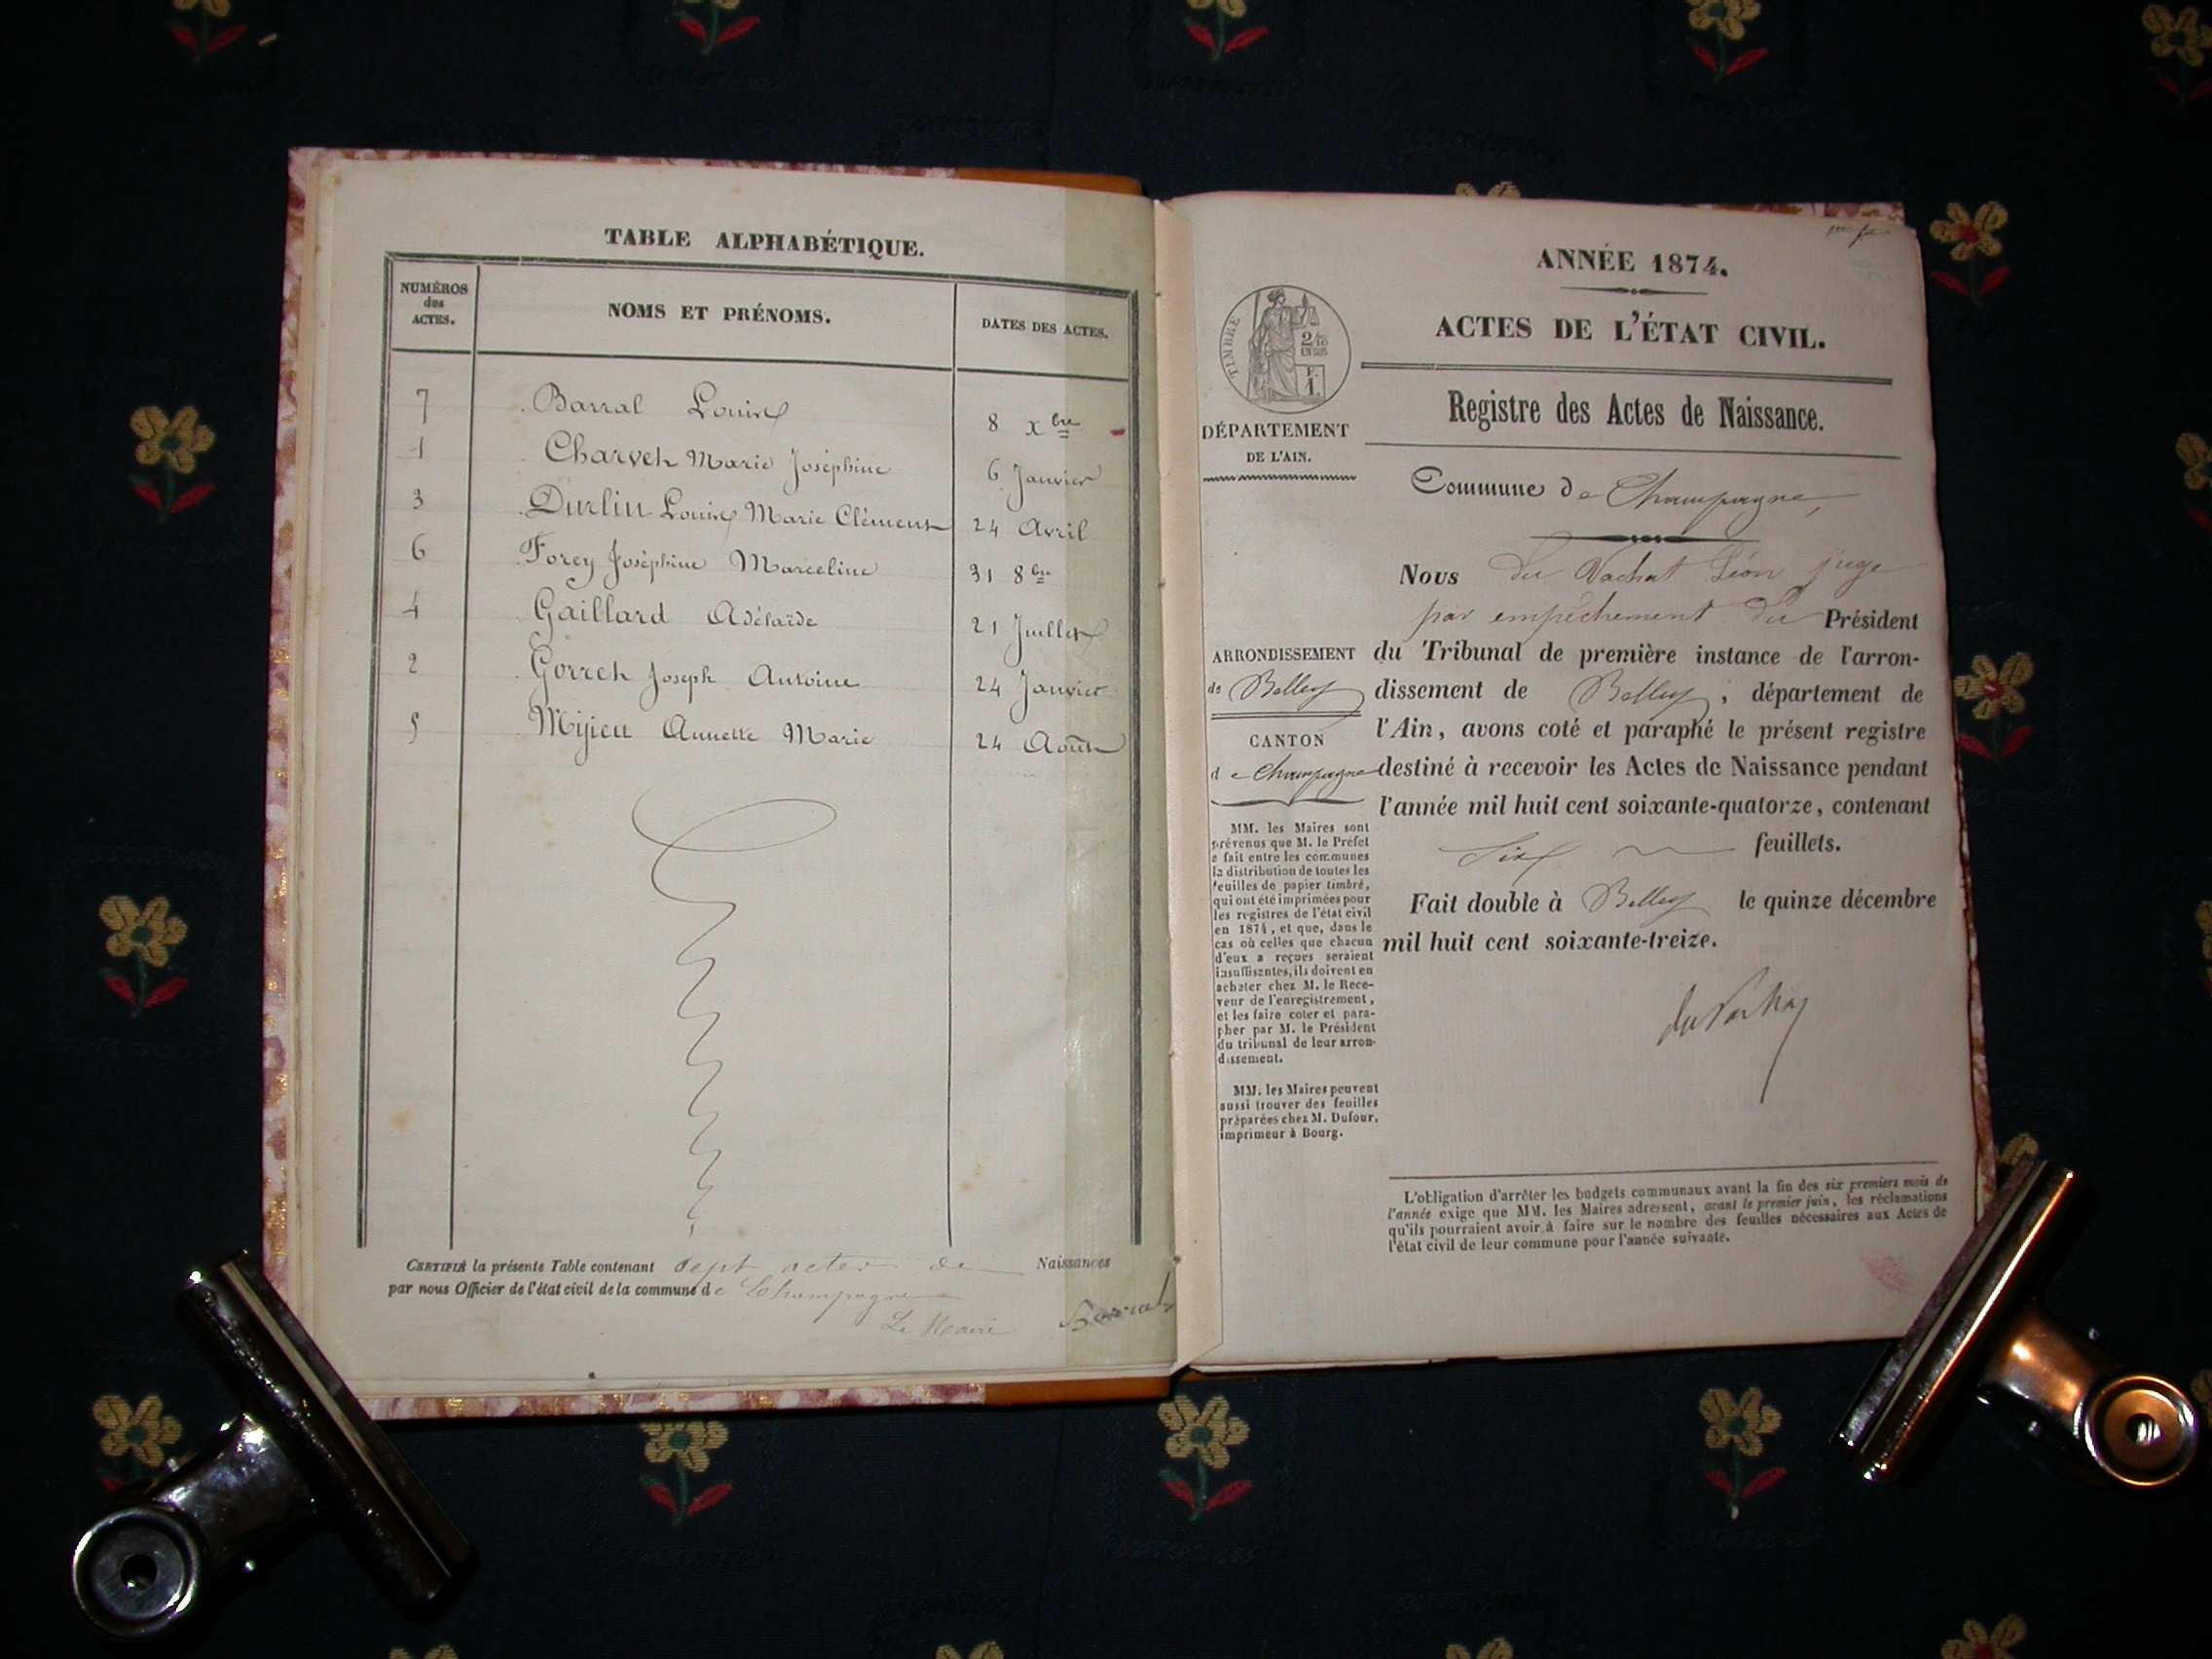 TABLE ALPHABÉTIQUE.
NUMÉROS des ACTES.
NOMS ET PRÉNOMS.
DATES DES ACTES.
7 Barral Louise 8 Xbre
1 Charvet Marie Joséphine 6 Janvier
3 Durlin Louise Marie Clémence 24 Avril
6 Forey Joséphine Marceline 31 8bre
4 Gaillard Adélaïde 21 Juillet
2 Gorret Joseph Antoine 24 Janvier
5 Mijieu Annette Marie 24 Août
CERTIFIÉ la présente Table contenant sept actes de Naissances
par nous Officier de l'état civil de la commune de Champagne
Le Maire Barral
ANNÉE 1874.
ACTES DE L'ÉTAT CIVIL.
TIMBRE
2/10
EN SUS
F.
1.
DÉPARTEMENT
DE L'AIN.
Registre des Actes de Naissance.
Commune de Champagne,
Nous Du Vachat Léon juge
par empêchement du Président
du Tribunal de première instance de l'arron-
dissement de Belley, département de
l'Ain, avons coté et paraphé le présent registre
destiné à recevoir les Actes de Naissance pendant
l'année mil huit cent soixante-quatorze, contenant
Six feuillets.
Fait double à Belley le quinze décembre
mil huit cent soixante-treize.
du Vachat
ARRONDISSEMENT
de Belley
CANTON
de Champagne
MM. les Maires sont
prévenus que M. le Préfet
a fait entre les communes
la distribution de toutes les
feuilles de papier timbré,
qui ont été imprimées pour
les registres de l'état civil
en 1874, et que, dans le
cas où celles que chacun
d'eux a reçues seraient
insuffisantes, ils doivent en
acheter chez M. le Rece-
veur de l'enregistrement,
et les faire coter et para-
pher par M. le Président
du tribunal de leur arron-
dissement.
MM. les Maires peuvent
aussi trouver des feuilles
préparées chez M. Dufour,
imprimeur à Bourg.
L'obligation d'arrêter les budgets communaux avant la fin des six premiers mois de
l'année exige que MM. les Maires adressent, avant le premier juin, les réclamations
qu'ils pourraient avoir à faire sur le nombre des feuilles nécessaires aux Actes de
l'état civil de leur commune pour l'année suivante.